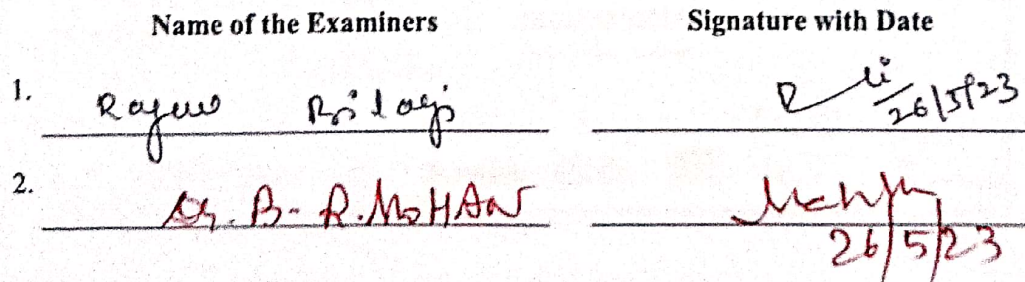 Name of the Examiners Signature with Date
1. 26/5/23
2. Dr. B. R. MOHAN
26/5/23